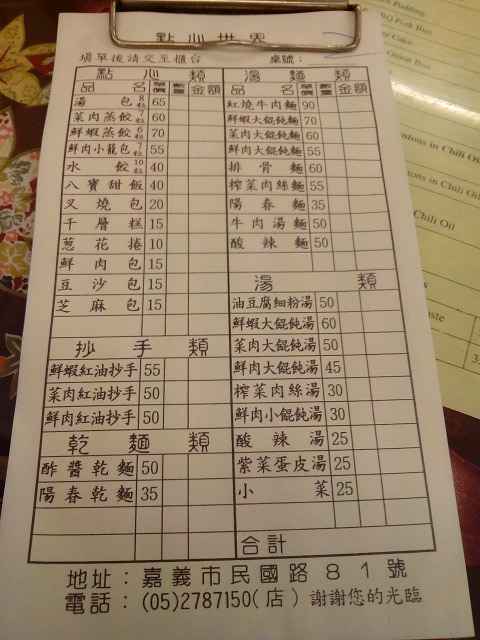 點心世界
填單後請交至櫃台 桌號：
點心類
品名 單價 數量 金額
湯包 8粒 65
菜肉蒸餃 7粒 60
鮮蝦蒸餃 6粒 70
鮮肉小籠包 7粒 55
水餃 10粒 40
八寶甜飯 40
叉燒包 20
千層糕 15
蔥花捲 10
鮮肉包 15
豆沙包 15
芝麻包 15
抄手類
鮮蝦紅油抄手 55
菜肉紅油抄手 50
鮮肉紅油抄手 50
乾麵類
酢醬乾麵 50
陽春乾麵 35
湯麵類
品名 單價 數量 金額
紅燒牛肉麵 90
鮮蝦大餛飩麵 70
菜肉大餛飩麵 60
鮮肉大餛飩麵 55
排骨麵 60
榨菜肉絲麵 55
陽春麵 35
牛肉湯麵 50
酸辣麵 50
湯類
油豆腐細粉湯 50
鮮蝦大餛飩湯 60
菜肉大餛飩湯 50
鮮肉大餛飩湯 45
榨菜肉絲湯 30
鮮肉小餛飩湯 30
酸辣湯 25
紫菜蛋皮湯 25
小菜 25
合計
地址：嘉義市民國路81號
電話：(05)2787150(店) 謝謝您的光臨
Pudding
BQ Pork Bun
Cake
Onion Bun
in Chili Oil
in Chili Oil
Chili Oil